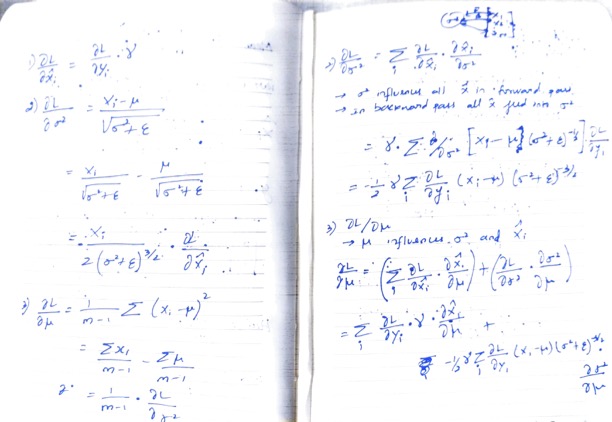 1) ∂L/∂x̂ᵢ = ∂L/∂yᵢ · γ
2) ∂L/∂σ² = (xᵢ - μ)/√(σ²+ε)
= xᵢ/√(σ²+ε) - μ/√(σ²+ε)
= xᵢ/2(σ²+ε)^3/2 · ∂L/∂x̂ᵢ
3) ∂L/∂μ = 1/(m-1) Σ (xᵢ - μ)²
= Σxᵢ/(m-1) - Σμ/(m-1)
= 1/(m-1) · ∂L/∂σ²
2) ∂L/∂σ² = Σᵢ ∂L/∂x̂ᵢ · ∂x̂ᵢ/∂σ²
→ σ² influences all x̂ in forward pass
→ in backward pass all x̂ feed into σ²
= γ · Σ ∂/∂σ² [xᵢ - μ] (σ²+ε)^-1/2] · ∂L/∂yᵢ
= -1/2 γ Σᵢ ∂L/∂yᵢ (xᵢ - μ) (σ²+ε)^-3/2
3) ∂L/∂μ
→ μ influences σ² and x̂ᵢ
∂L/∂μ = (Σᵢ ∂L/∂x̂ᵢ · ∂x̂ᵢ/∂μ) + (∂L/∂σ² · ∂σ²/∂μ)
= Σᵢ ∂L/∂yᵢ · γ · ∂x̂ᵢ/∂μ +
-1/2 γ Σᵢ ∂L/∂yᵢ (xᵢ - μ)(σ²+ε)^-3/2
∂σ²/∂μ